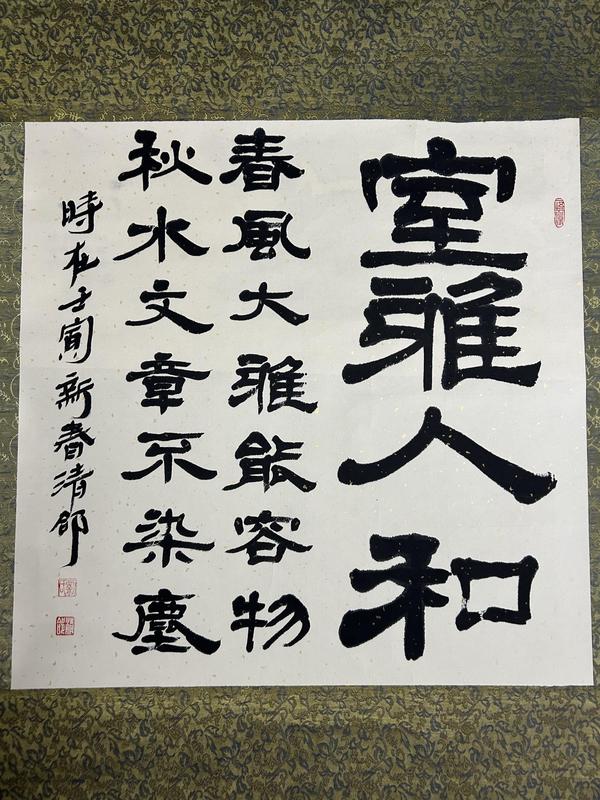 室雅人和
春風大雅能容物
秋水文章不染塵
時在壬寅新春清邰